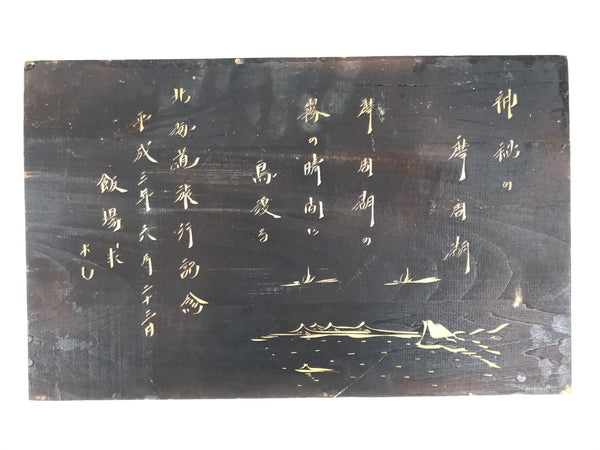 神秘の
摩周湖
摩周湖の
霧の晴間に
鳥渡る
北海道旅行記念
平成三年六月二十三日
飯場